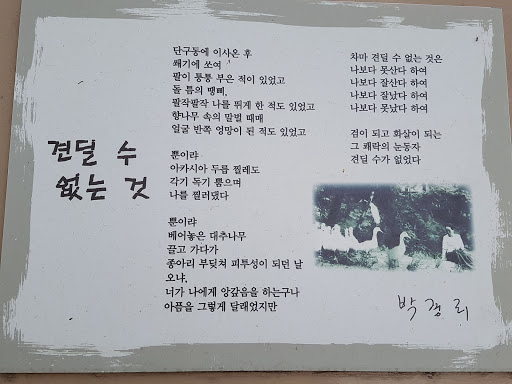 견딜 수
없는 것
단구동에 이사온 후
쐐기에 쏘여
팔이 퉁퉁 부은 적이 있었고
돌 틈의 뱀삐,
팔작팔작 나를 뛰게 한 적도 있었고
향나무 속의 말벌 때매
얼굴 반쪽 엉망이 된 적도 있었고
뿐이랴
아카시아 두릅 찔레도
각기 독기 뿜으며
나를 찔러댔다
뿐이랴
베어놓은 대추나무
끌고 가다가
종아리 부딪쳐 피투성이 되던 날
오냐,
너가 나에게 앙갚음을 하는구나
아픔을 그렇게 달래었지만
차마 견딜 수 없는 것은
나보다 못산다 하여
나보다 잘산다 하여
나보다 잘났다 하여
나보다 못났다 하여
검이 되고 화살이 되는
그 쾌락의 눈동자
견딜 수가 없었다
박경리